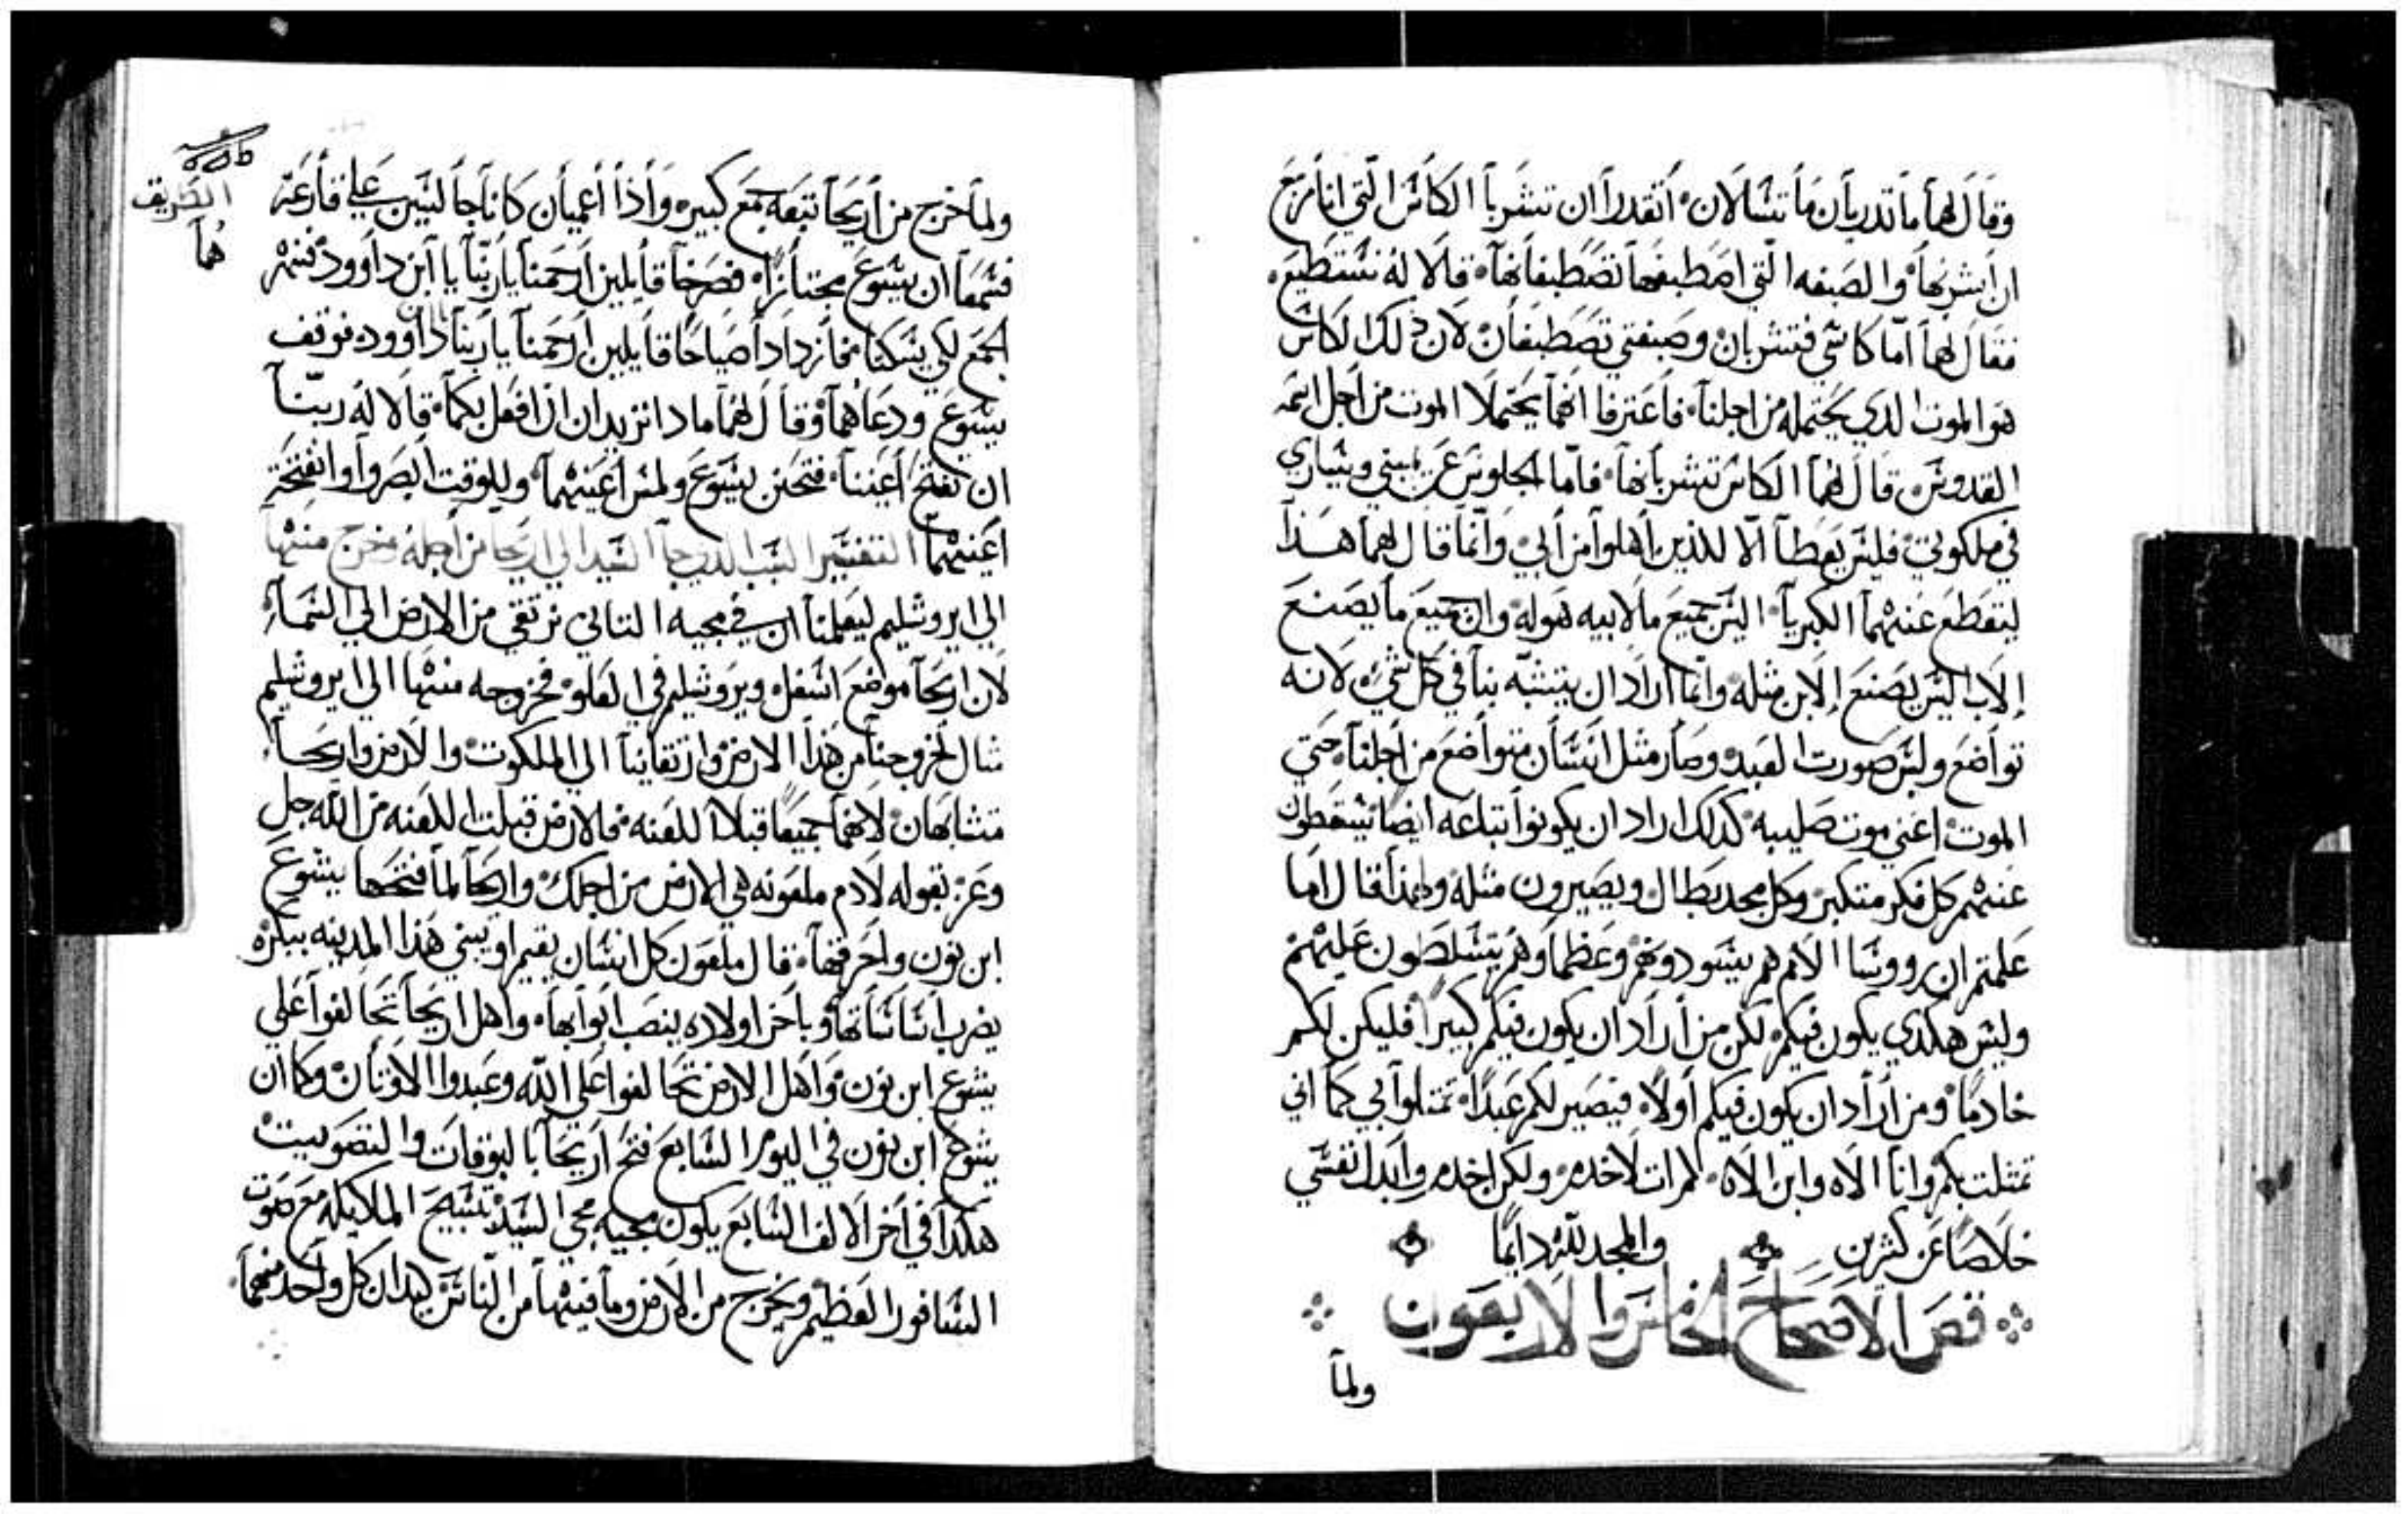 وقال لهما ما تدريان ما تسالان اتقدرا ان تشربا الكاس التي انا مزمع
ان اشربها والصبغه التي اصطبغها تصطبغانها قالا له نستطيع
فقال لهما اما كاسي فتشربان وصبغتي تصطبغان لان ذلك الكاس
هو الموت الدي يحتمله من اجلنا فاعترفا انهما يحتملا الموت من اجل اسمه
القدوس قال لهما الكاس تشربانها فاما الجلوس عن يميني ويساري
في ملكوتي فليس يعطا الا للذين اهلوا من ابي وانما قال لهما هذا
ليقطع عنهما الكبريا اليس جميع ما لابيه هو له وان جميع ما يصنع
الاب اليس يصنع الابن مثله وانما اراد ان يتشبه بنا في كل شي لانه
تواضع ولبس صورت العبد وصار مثل انسان متواضع من اجلنا حتي
الموت اعني موت صليبه كدلك اراد ان يكونوا تباعه ايضا يسقطون
عنهم كل فكر متكبر وكل مجد بطال ويصيرون مثله ولهذا قال اما
علمتم ان رووسا الامم هم يسودونهم وعظماوهم يتسلطون عليهم
وليس هكدي يكون فيكم لكن من اراد ان يكون فيكم كبيرا فليكن لكم
خادما ومن اراد ان يكون فيكم اولا فيصير لكم عبدا تمتلوا بي كما اني
تمثلت بكم وانا الاه وابن الاه لم ات لاخدم ولكن اخدم وابدل نفسي
خلاصا عن كثيرين والمجد لله دايما
قص الاصحاح الخامس والاربعون
ولما
ولما خرج من اريحا تبعه جمع كبير واذا اعميان كانا جالسين علي قارعة
الطريق
فسمعا ان يسوع مجتازا فصرخا قايلين ارحمنا يا ربنا يا ابن داوود فنهر
هما
الجمع لكي يسكتا فازدادا صياحا قايلين ارحمنا يا ربنا داوود فوقف
يسوع ودعاهما وقال لهما مادا تريدان ان افعل بكما قالا له ربنا
ان تفتح اعيننا فتحنن يسوع ولمس اعينهما وللوقت ابصروا وانفتحة
اعينهما التفسير السبب الدي جا السيد الي اريحا من اجله فخرج منها
الي ايروشليم ليعلمنا ان في مجيه التاني نرتقي من الارض الي السما
لان اريحا موضع اسفل ويروشليم في العلو فخروجه منها الي ايروشليم
متال لخروجنا من هذا الارض وارتقاينا الي الملكوت والارض واريحا
متشابهان لانهما جميعا قبلا اللعنه فالارض قبلت اللعنه من الله جل
وعز بقوله لادم ملعونه هي الارض من اجلك واريحا لما فتحها يشوع
ابن نون واحرقها قال ملعون كل انسان يقيم او يبني هذا المدينه ببكره
يضرب اساساتها وباخر اولاده ينصب ابوابها واهل اريحا تحالفوا علي
يشوع ابن نون واهل الارض تحالفوا علي الله وعبدوا الاوتان وكما ان
يشوع ابن نون في اليوم السابع فتح اريحا بالبوقات والتصويت
هكدا في اخر الالف السابع يكون مجيه مجي السيد تسبيح الملايكه مع صوت
السافور العظيم ويخرج من الارض وما فيها من الناس كل واحد منهما